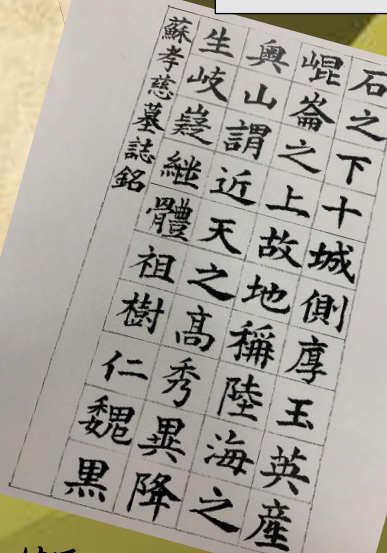 石之下十城側厚玉英産
崐崙之上故地稱陸海之
奥山謂近天之髙秀異降
生岐嶷継體祖樹仁魏黒
蘇孝慈墓誌銘